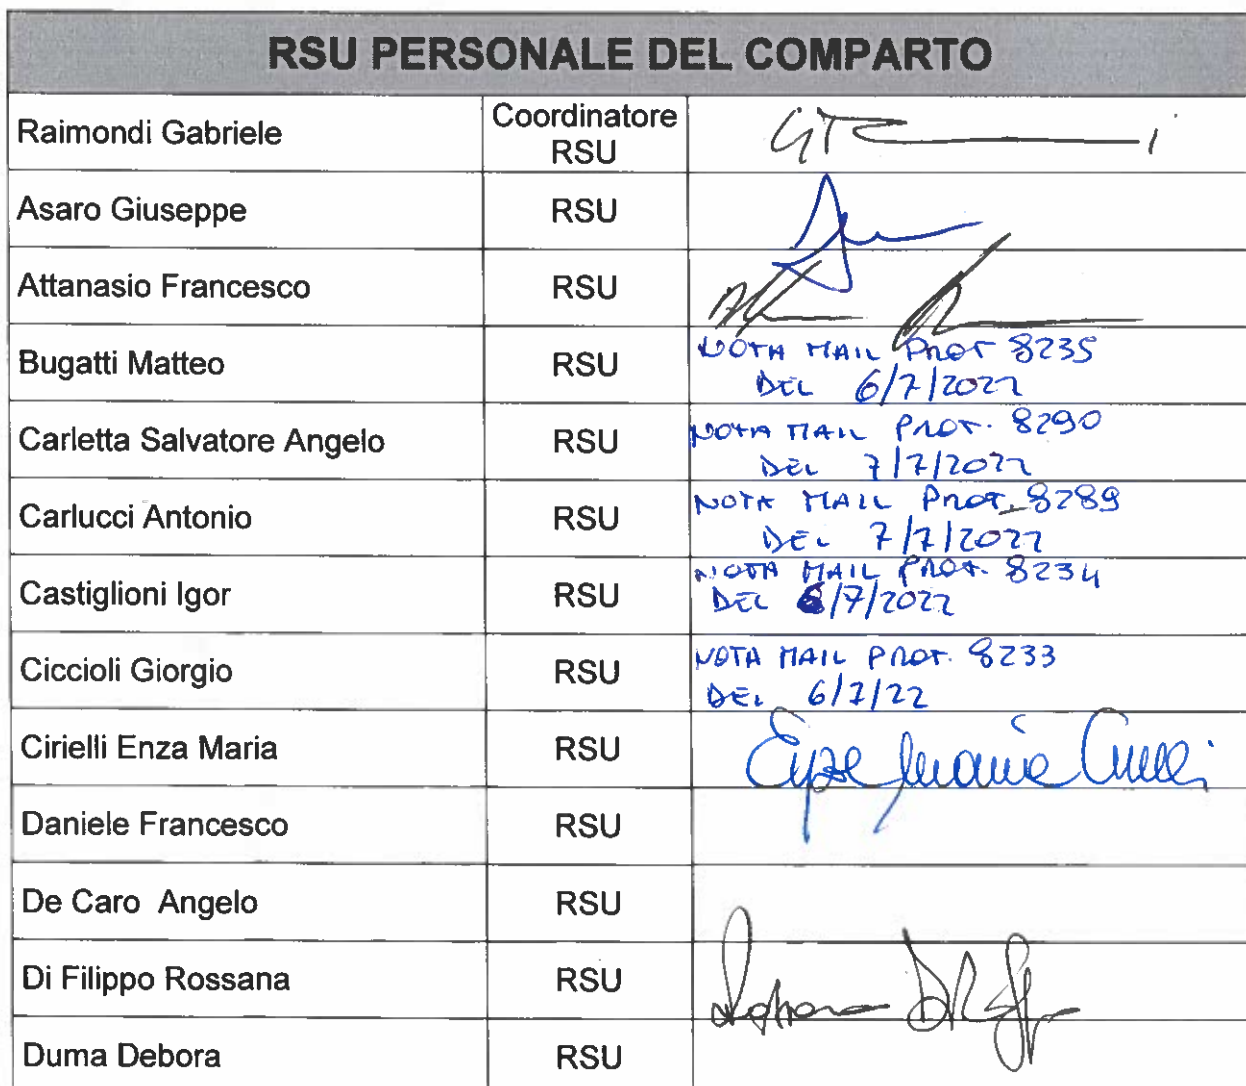 RSU PERSONALE DEL COMPARTO
Raimondi Gabriele Coordinatore RSU
Asaro Giuseppe RSU
Attanasio Francesco RSU
Bugatti Matteo RSU NOTA MAIL PROT 8235
DEL 6/7/2022
Carletta Salvatore Angelo RSU NOTA MAIL PROT. 8290
DEL 7/7/2022
Carlucci Antonio RSU NOTA MAIL PROT. 8289
DEL 7/7/2022
Castiglioni Igor RSU NOTA MAIL PROT. 8234
DEL 6/7/2022
Ciccioli Giorgio RSU NOTA MAIL PROT. 8233
DEL 6/7/22
Cirielli Enza Maria RSU Enza Maria Cirielli
Daniele Francesco RSU
De Caro Angelo RSU
Di Filippo Rossana RSU
Duma Debora RSU